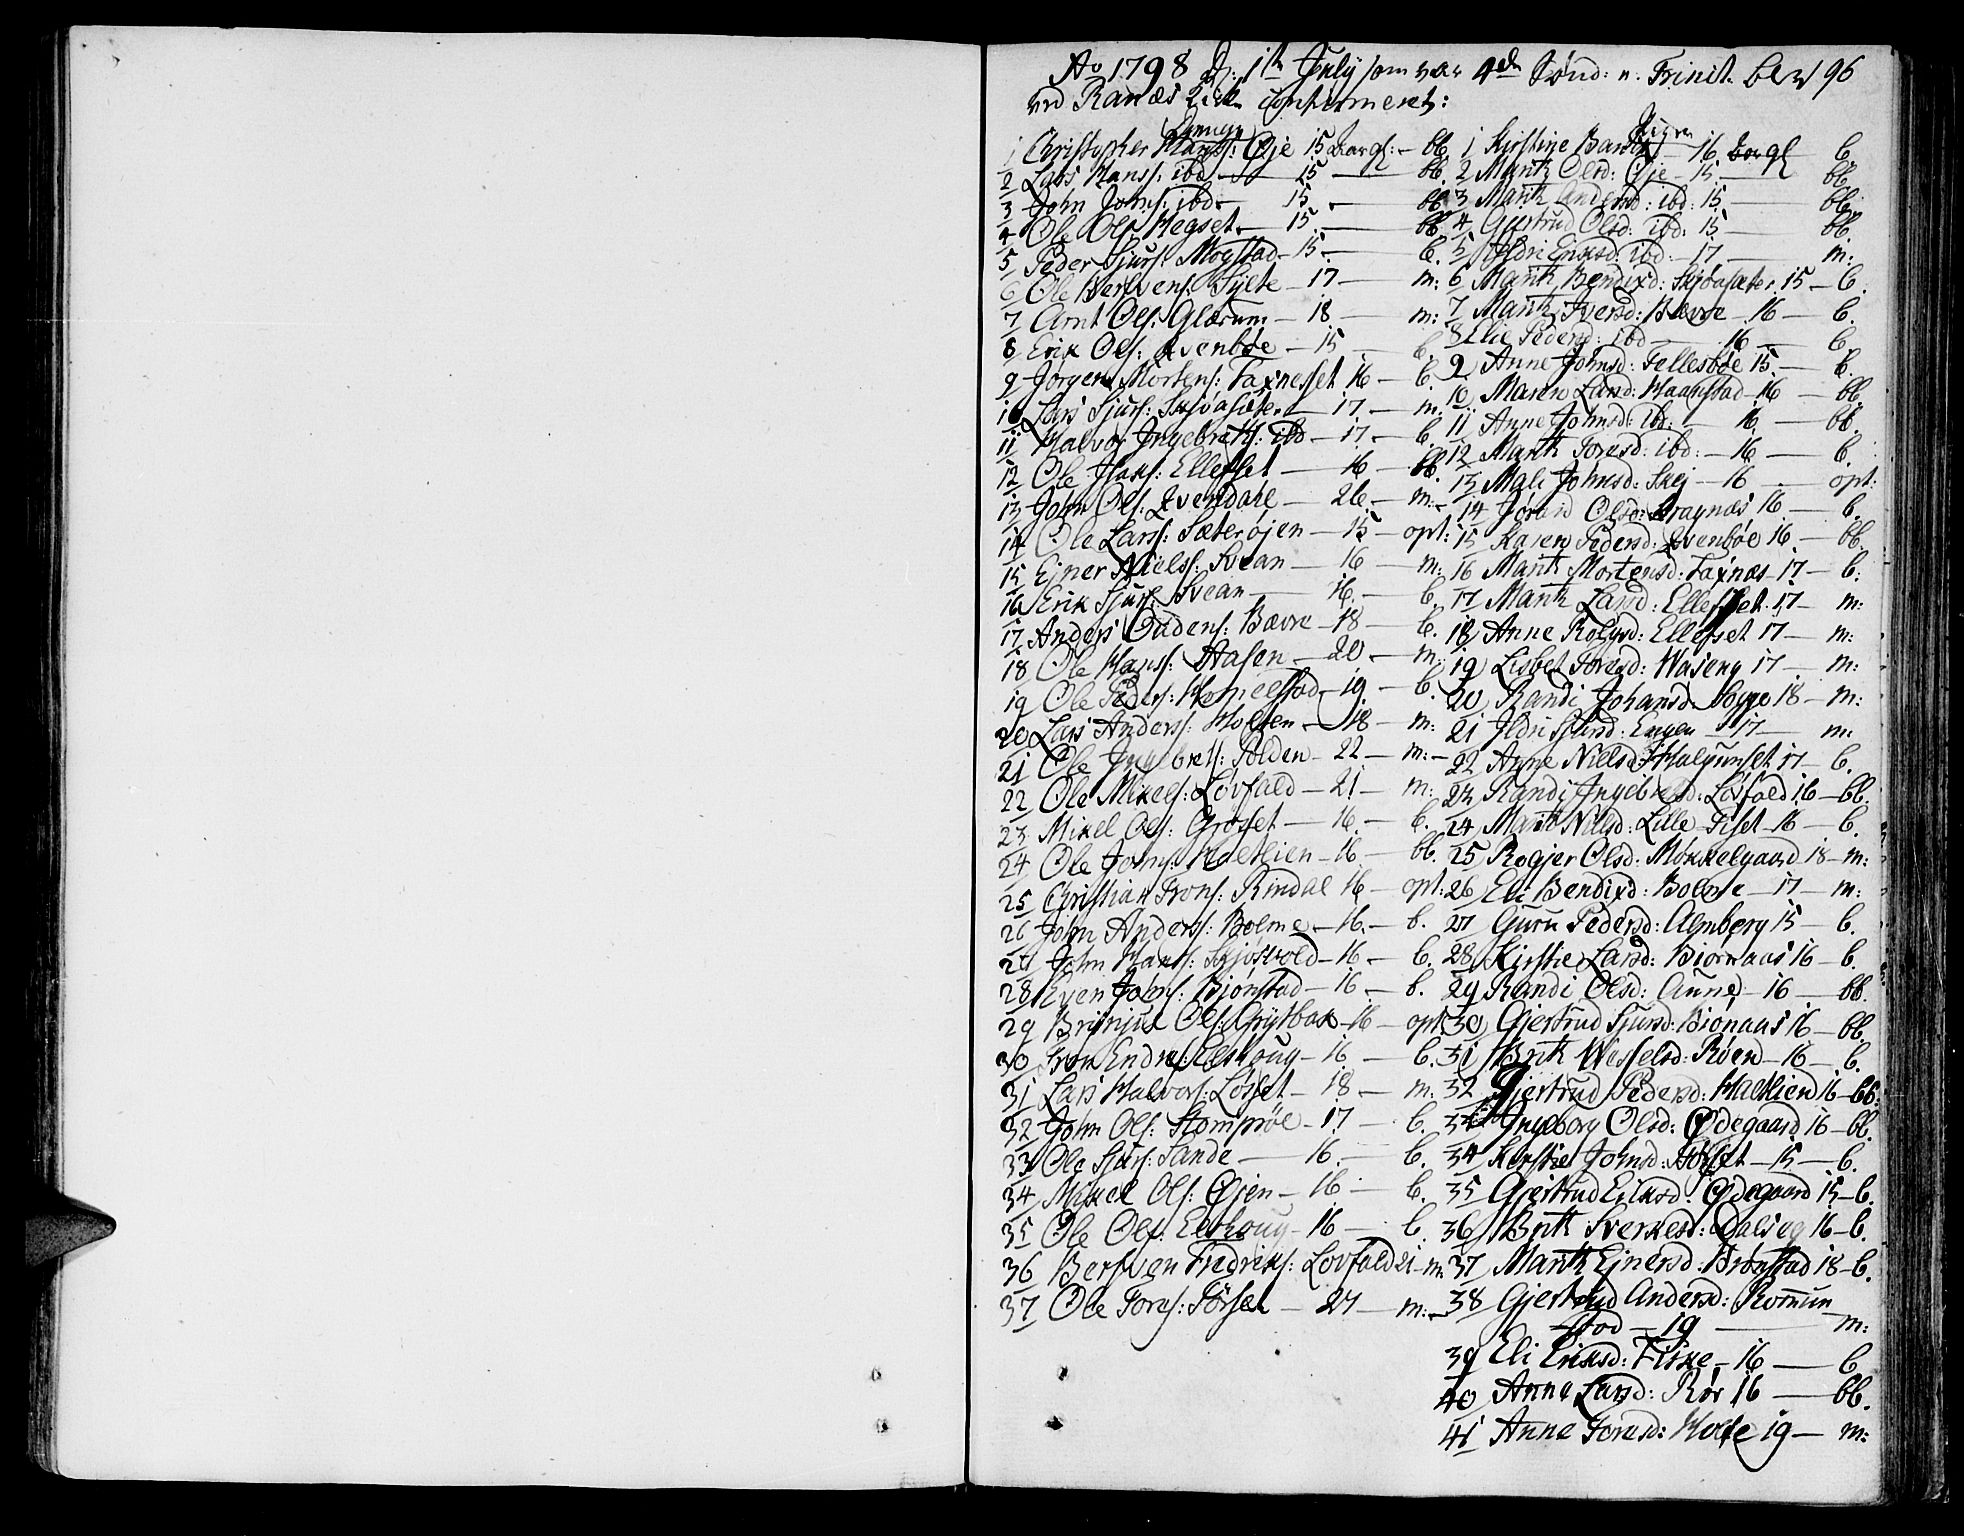 Ao 1798 D: 1te July som var 4de Sønd: n. Trinit. blev 96
ved Ranæs Kirke Confirmeret:
Drenge
1 Christopher Hanss: Øje 15 aargl: - bb.
2 Lars Hanss: ibd - 15 - bb.
3 John Johns: ibd - 15. - bb.
4 Ole Ols: Hegset. - 15. - bb.
5 Peder Sjurs: Mogstad - 15 - b.
6 Ole Bersvens: Sylte - 17 - m:
7 Arnt Ols: Glærum - 18. - m:
8 Erik Ols: Kvenbøe - 15 - b.
9 Jørgen Mortens: Faxnesset 16 - b.
10 Lars Sjurs: Skjøasæter - 17. - m:
11 Halvor Ingebretss: ibd - 17. - b.
12 Ole Isaks: Ellefset - 16 - bb.
13 John Ols: Kvendahl - 26. - m:
14 Ole Larss: Sæterøjen - 15 - opt:
15 Ejner Niels: Svean - 16 - m:
16 Erik Sjurs: Svean - 16. - b.
17 Anders Oudens: Bævre - 18 - b.
18 Ole Hanss: Aasen - 20 - m:
19 Ole Peders: Homelstad - 19 - b.
20 Lars Anderss: Holten - 18 - m:
21 Ole Ingebrets: Polden - 22 - m:
22 Ole Mikels: Løvfald - 21 - m:
23 Mikel Ols: Grøsset - 16. - b.
24 Ole Johns: Haltlien - 16. - bb.
25 Christian Trons: Rindal 16 - opt:
26 John Anderss: Bolme - 16. - b.
27 John Hanss: Skjøsvold - 16 - b.
28 Even Johns: Bjønstad - 16 - b.
29 Brynjul Ols: Grytbak - 16 - opt:
30 Tron Endres: Elshoug - 16 - b.
31 Lars Halvors: Løset - 18 - m:
32 John Ols: Stomprøe - 17 - b.
33 Ole Sjurs: Sande - 16. - b.
34 Mikel Ols: Øjen - 16 - b.
35 Ole Ols: Elshoug - 16 - b.
36 Bersven Fredriks: Løvfald 21 - m:
37 Ole Tores: Sørsel - 27 - m:
Piger
1 Kirstine Banks - 16 aargl b.
2 Marit Olsd: Øje - 15 - bb.
3 Marit Andersd: ibd: 15. - bb.
4 Gjertrud Olsd: ibd: 15 - bb.
5 Ildri Eriksd: ibd: 17 - m:
6 Marit Bendixd: Skjøasæter. 15 - b.
7 Marit Iversd: Bævre. 16 - b.
8 Elie Pedersd: ibd - 16 - b.
9 Anne Johnsd: Fellesbøe 15. - b.
10 Maren Larsd: Haanstad - 16 - bb.
11 Anne Johnsd: ibd: - 16. - bb.
12 Marit Toresd: ibd: - 16 - b.
13 Mali Johnsd: Skej - 16 - opt:
14 Jørand Olsd: Kragnæs 16 - b.
15 Karen Pedersd: Kvenbøe 16. - bb.
16 Marit Mortensd: Faxnæs - 17 - b:
17 Marit Larsd: Ellefset. 17 - m:
18 Anne Rolfsd: Ellefset 17 - m:
19 Lisbet Toresd: Waseng 17 - m:
20 Randi Johansd: Sogge 18 - m:
21 Ildri Sjursd: Engen - 17 - m:
22 Anne Nielsd: Halgunset 17 - b.
23 Randi Ingebretsd: Løvfald 16 - bb.
24 Marit Nilsd: Lille-Fiset - 16 - b.
25 Rogjer Olsd: Møkkelgaard 18 - m:
26 Eli Bendixd: Bolme - 17 - m:
27 Guru Pedersd: Almberg 15 - b.
28 Kirstie Larsd: Biørnaas 16 - b.
29 Randi Olsd: Aune - 16 - bb.
30 Gjertrud Sjursd: Biønaas 16 - bb.
31 Brit Wesselsd: Røen - 16 - b.
32 Gjertrud Pedersd: Haltlien 16 - bb.
33 Ingeborg Olsd: Ødegaard 16 - bb.
34 Kirstie Johnsd: Løset - 15 - b.
35 Gjertrud Eriksd: Ødegaard 15 - b.
36 Brit Sverkesd: Dalseg 16 - b.
37 Marit Ejnersd: Brøstad 18 - b.
38 Gjertrud Andersd: Romun
stad - 19 - m:
39 Eli Eriksd: Fiske - 16 - b.
40 Anne Larsd: Rør 16 - bb.
41 Anne Toresd: Holte 19 - m: